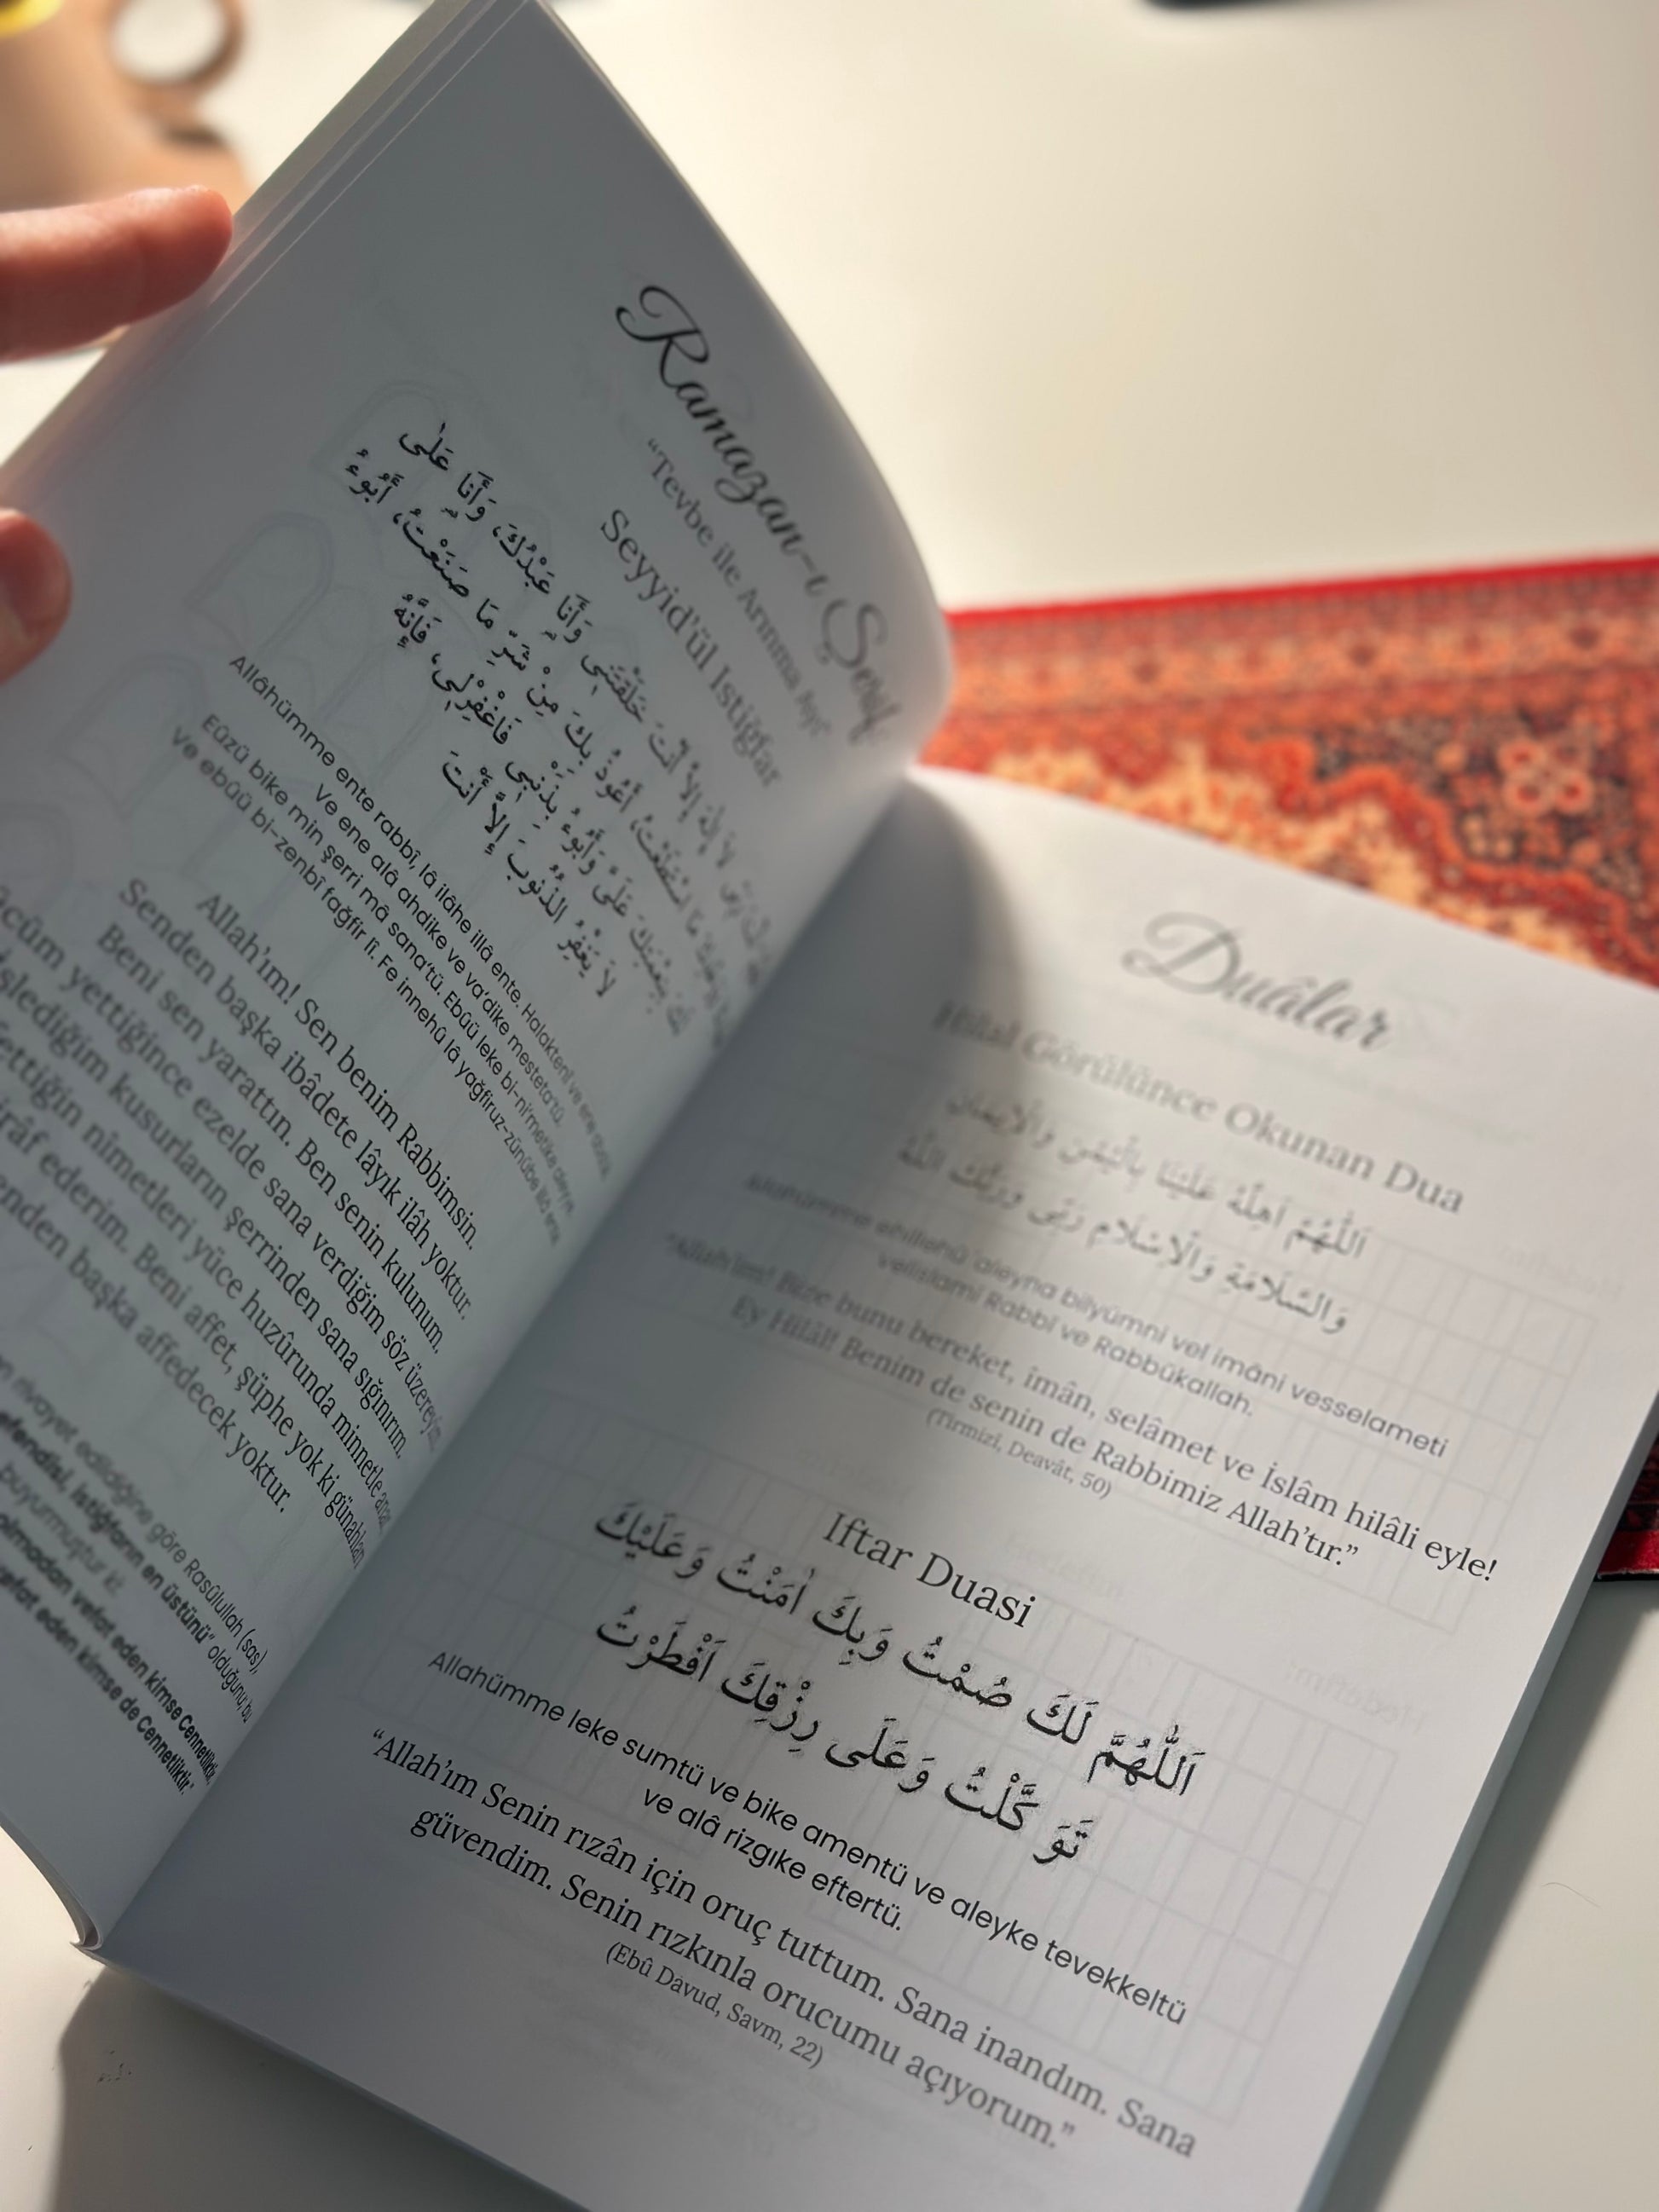 Ramazan-ı Şerif
“Tevbe ile Arınma Ayı”
Seyyid'ül Istiğfar
لاَ إِلَهَ إِلاَّ أَنْتَ خَلَقْتَنِى وَأَنَا عَبْدُكَ، وَأَنَا عَلَى
مَا اسْتَطَعْتُ، أَعُوذُ بِكَ مِنْ شَرِّ مَا صَنَعْتُ، أَبُوءُ
لَكَ بِنِعْمَتِكَ عَلَىَّ وَأَبُوءُ بِذَنْبِى فَاغْفِرْلِى، فَإِنَّهُ
لاَ يَغْفِرُ الذُّنُوبَ إِلاَّ أَنْتَ
Allâhümme ente rabbî, lâ ilâhe illâ ente. Halaktenî ve ene
Ve ene alâ ahdike ve va'dike mesteta'tü.
Eûzü bike min şerri mâ sana'tü. Ebûü leke bi-ni'metike
Ve ebûü bi-zenbî fağfir lî. Fe innehû lâ yağfiruz-zünûbe illâ ente
Allah'ım! Sen benim Rabbimsin.
Senden başka ibâdete lâyık ilâh yoktur.
Beni sen yarattın. Ben senin kulunum.
yettiğince ezelde sana verdiğim söz üzereyim
işlediğim kusurların şerrinden sana sığınırım.
ettiğin nimetleri yüce huzûrunda minnetle anar
ederim. Beni affet, şüphe yok ki günahları
senden başka affedecek yoktur.
rivayet edildiğine göre Rasûlullah (sas),
efendisi, istiğfarın en üstünü” olduğunu, bu
buyurmuştur ki:
olmadan vefat eden kimse Cennetliktir,
vefat eden kimse de Cennetliktir.”
Duâlar
Hilal Görülünce Okunan Dua
اَللّٰهُمَّ اَهِلَّهُ عَلَيْنَا بِالْيُمْنِ وَالْاِيمَانِ
وَالسَّلاَمَةِ وَالْاِسْلَامِ رَبِّى وَرَبُّكَ اللّٰهُ
Allahümme ehillehû aleyna bilyümni vel imâni vesselameti
velislami Rabbî ve Rabbükallah.
“Allah'ım! Bize bunu bereket, imân, selâmet ve İslâm hilâli eyle!
Ey Hilâl! Benim de senin de Rabbimiz Allah'tır.”
(Tirmizî, Deavât, 50)
Iftar Duasi
اَللّٰهُمَّ لَكَ صُمْتُ وَبِكَ اٰمَنْتُ وَعَلَيْكَ
تَوَكَّلْتُ وَعَلَى رِزْقِكَ اَفْطَرْتُ
Allahümme leke sumtü ve bike amentü ve aleyke tevekkeltü
ve alâ rizgıke eftertü.
“Allah'ım Senin rızân için oruç tuttum. Sana inandım. Sana
güvendim. Senin rızkınla orucumu açıyorum.”
(Ebû Davud, Savm, 22)